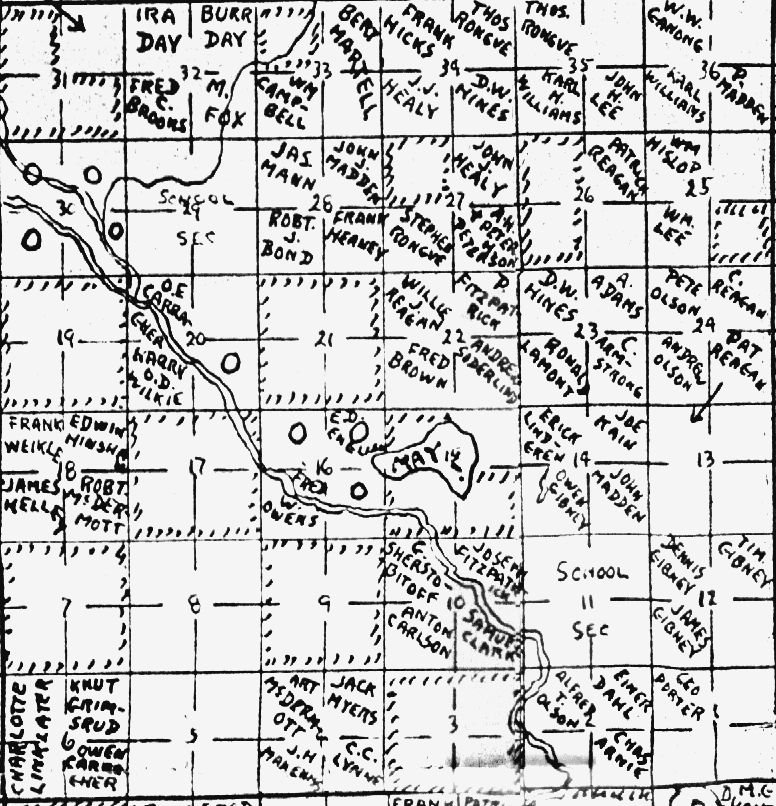 IRA DAY
BURR DAY
BERT MARTELL
FRANK HICKS
THOS RONGVE
THOS. RONGVE
W.W. GANONG
31
FRED C. BROOKS
32
M. FOX
WM CAMP-BELL
33
J.J. HEALY
34
D.W. HINES
KARL H. WILLIAMS
35
JOHN H. LEE
KARL WILLIAMS
36
P. MADDEN
JAS MANN
JOHN J. MADDEN
JOHN J. HEALY
PATRICK REAGAN
WM HISLOP
30
SCHOOL
29
SEC
28
27
26
25
ROBT. J. BOND
FRANK HEANEY
STEPHEN RONGVE
PETER H PETERSON
WM. LEE
O.E CARRA-GHER
HARRY O.D. WILKIE
WILLIE J. REAGAN
P. FITZPAT RICK
D.W. HINES
A. ADAMS
PETE OLSON
C. REAGAN
19
20
21
22
23
24
FRED BROWN
ANDREW SIDERLIND
RONALD LAMONT
C. ARM-STRONG
ANDREW OLSON
PAT REAGAN
FRANK WEIKLE
EDWIN HINSHA
E.D.
ERICK LIND-GREN
JOE KAIN
18
17
16
HAY
14
13
JAMES KELLEY
ROBT. McDER MOTT
FRED W. OWENS
OWEN GIBNEY
JOHN MADDEN
C. SHERSTO-BITOFF
JOSEPH FITZPATRICK
SCHOOL
DENNIS GIBNEY
TIM. GIBNEY
7
8
9
10
11
12
ANTON CARLSON
SAMUEL CLARK
SEC
JAMES GIBNEY
CHARLOTTE LINKLATER
KNUT GRIM-SRUD
ART McDERM OTT
JACK MYERS
ALFRED T. OLSON
EINER DAHL
LEO PORTER
6
5
3
2
1
OWEN CARRA GHER
J.H
C.C. LYNNE
CHAS ARNIE
FRANK
D.M.G